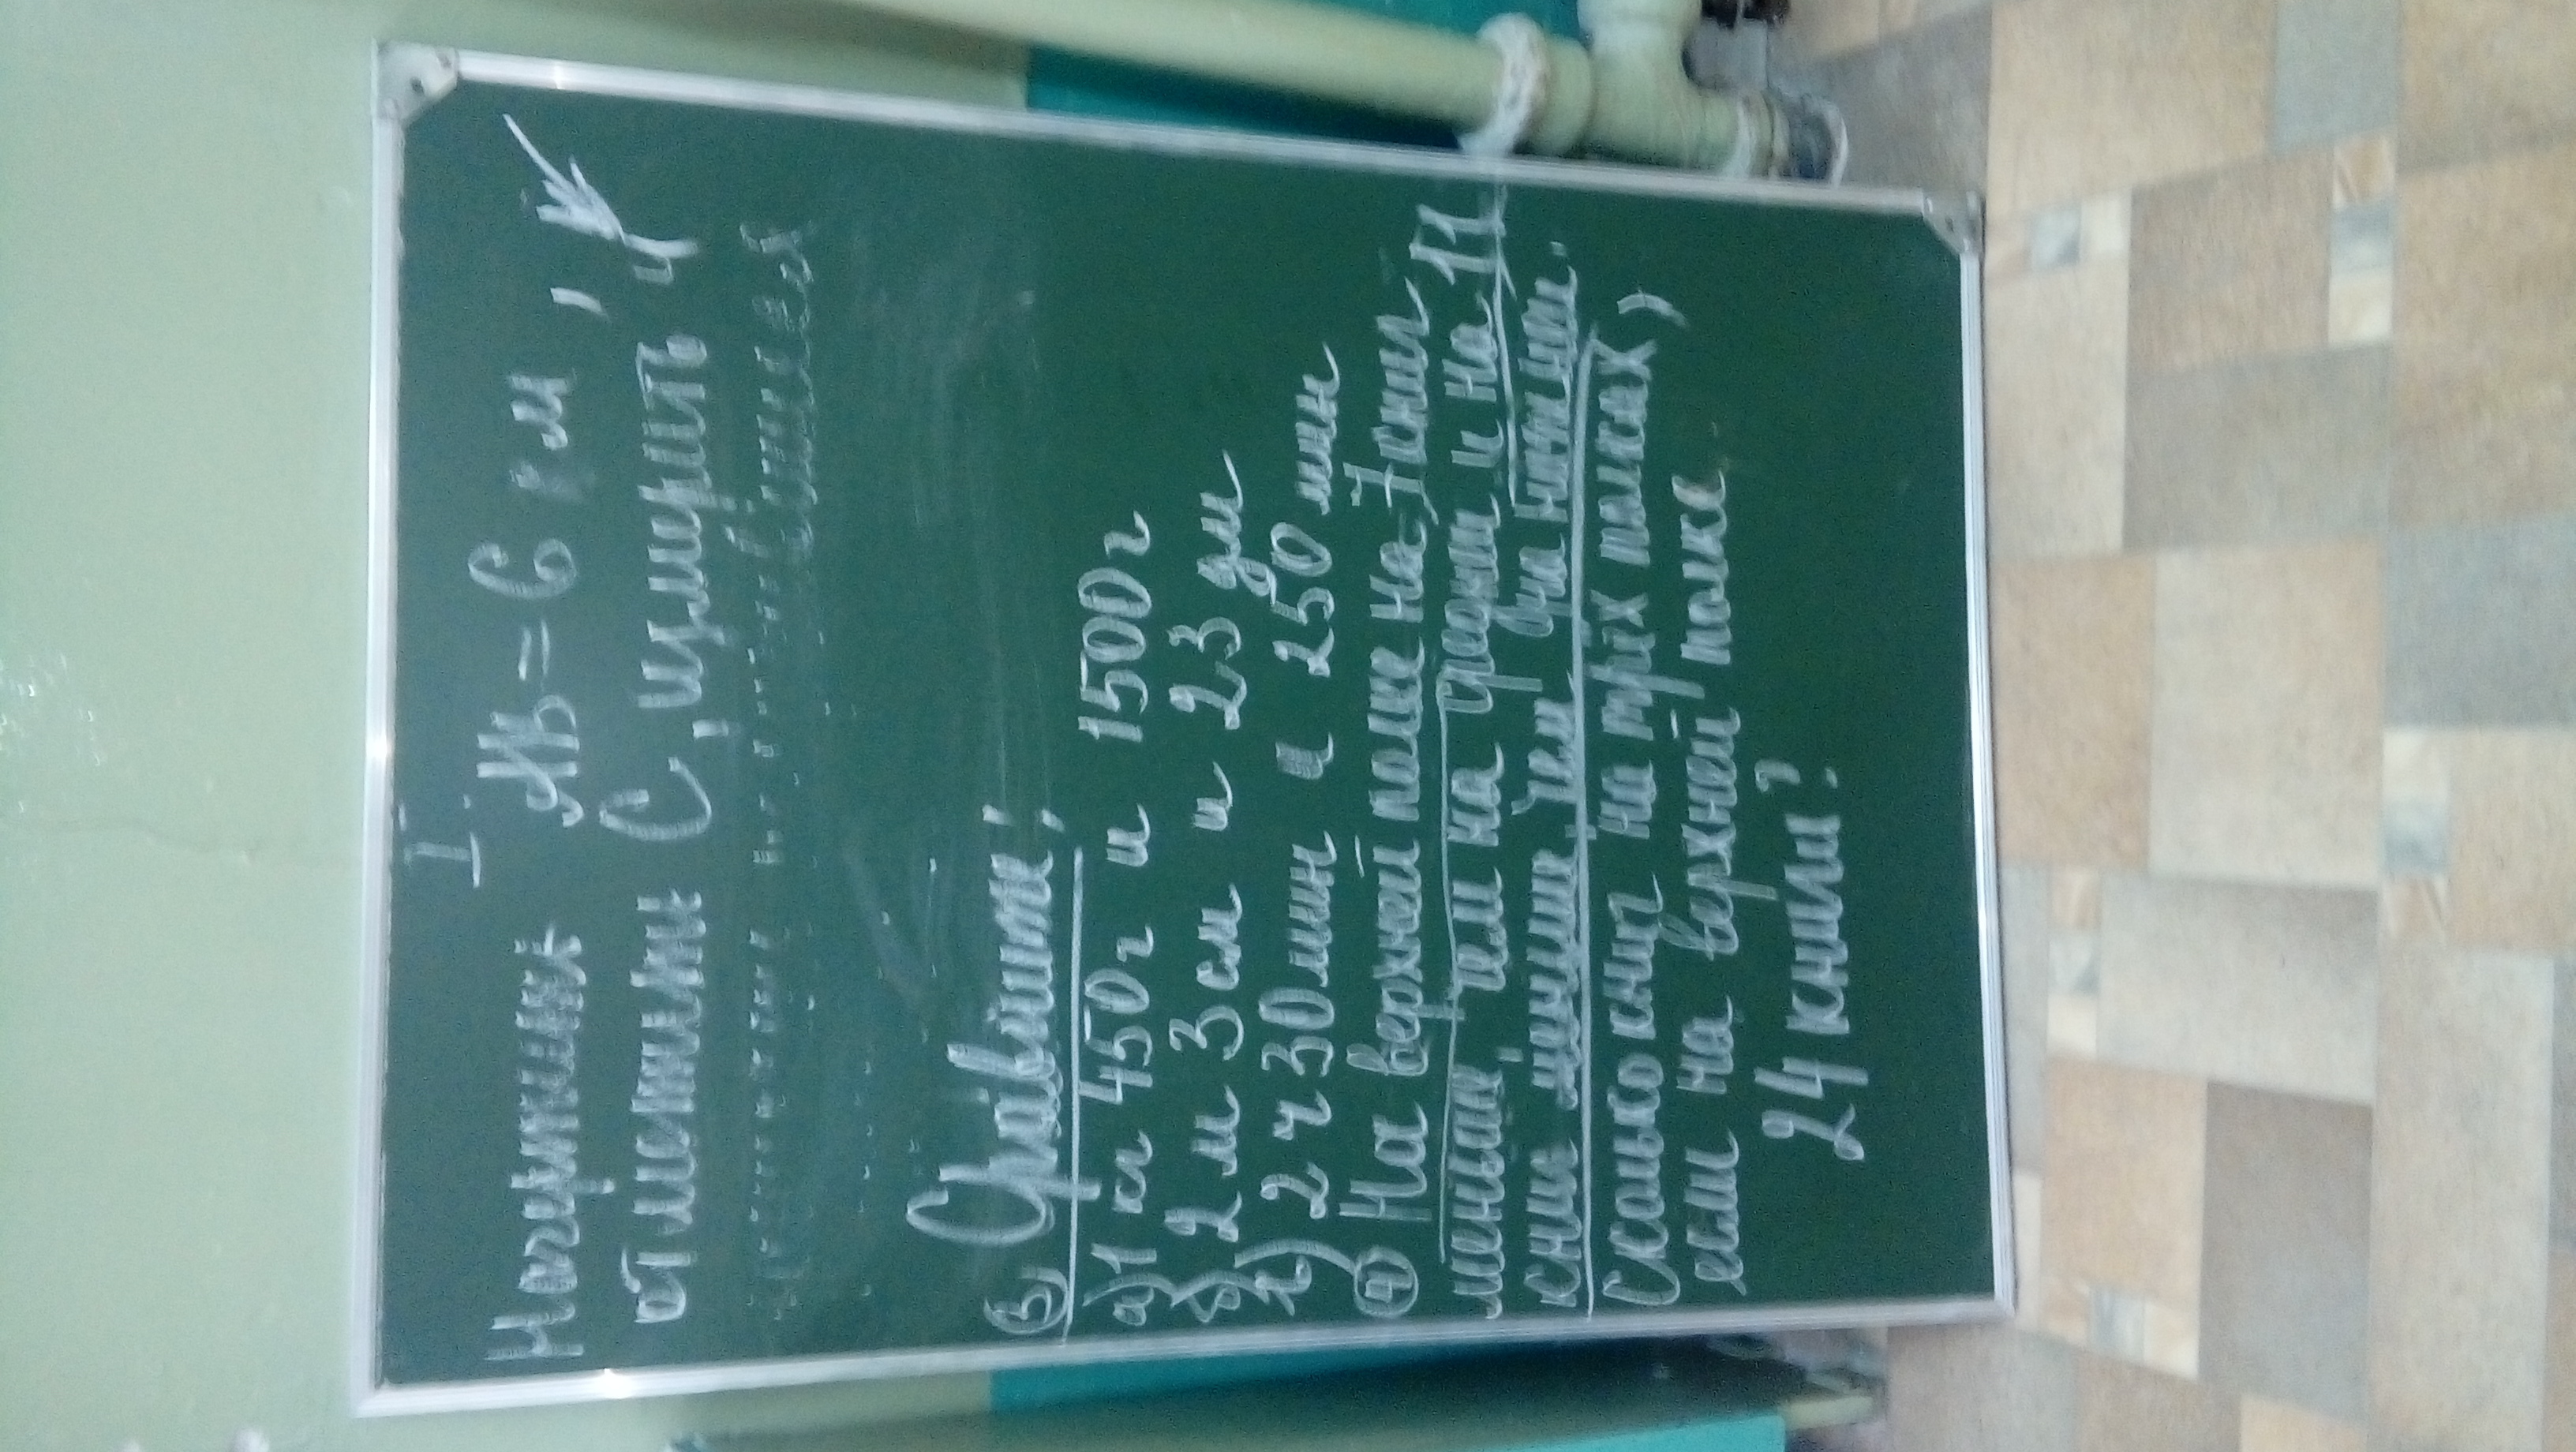 I
Начертить АВ = 6 см, и
отметить С, измерить
③ Сравнить:
а) 1 кг 450 г и 1500 г
б) 2 м 3 см и 23 дм
в) 2 ч 30 мин и 250 мин
④ На верхней полке на 7 книг
меньше, чем на средней и на 11
книг меньше, чем на нижней.
Сколько книг на трёх полках,
если на верхней полке
24 книги?